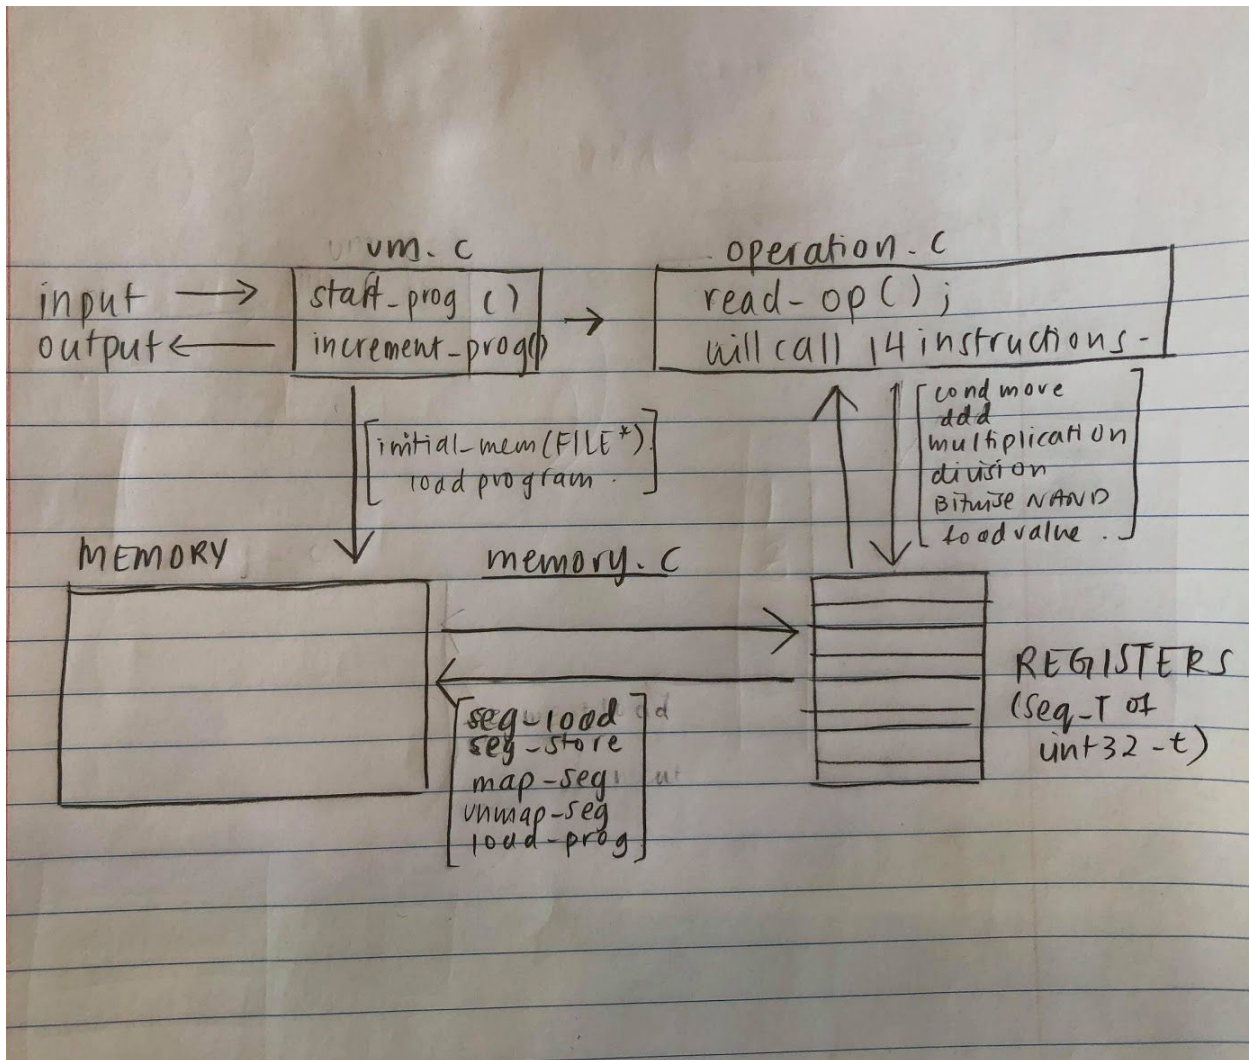 vm.c
operation.c
input
output
start_prog ()
increment_prog()
read-op();
will call 14 instructions.
[initial_mem(FILE*).
load program.]
[cond move
add
multiplication
division
Bitwise NAND
load value.]
MEMORY
memory.c
[seg-load
seg-store
map-seg
unmap-seg
load-prog]
REGISTERS
(Seq_T of
uint32_t)